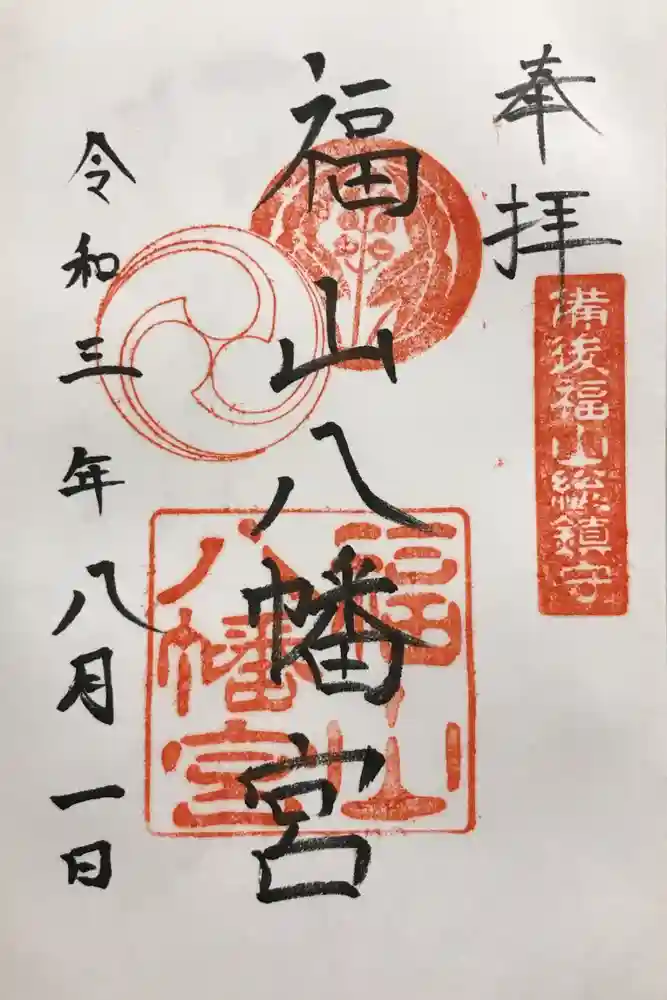 奉拝
備後福山総鎮守
福山八幡宮
福山
八幡宮
令和三年八月一日